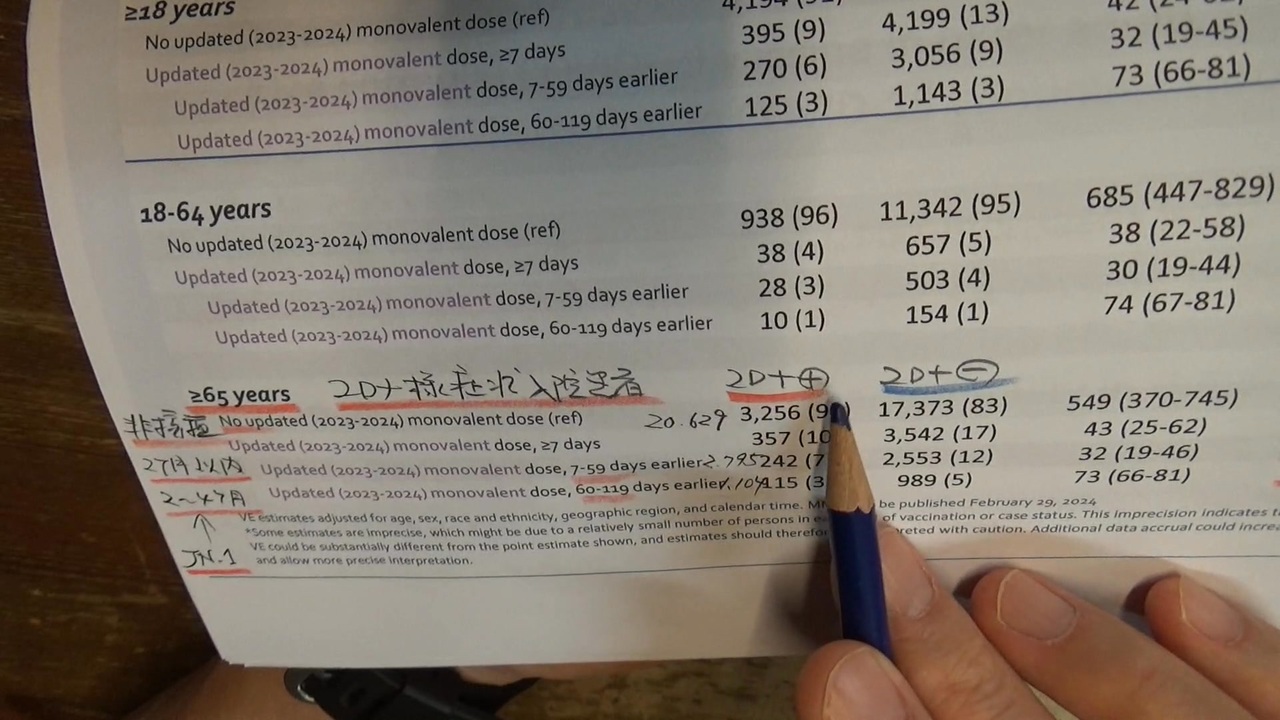 ≥18 years
No updated (2023-2024) monovalent dose (ref)
Updated (2023-2024) monovalent dose, ≥7 days 395 (9) 4,199 (13)
Updated (2023-2024) monovalent dose, 7-59 days earlier 270 (6) 3,056 (9) 32 (19-45)
Updated (2023-2024) monovalent dose, 60-119 days earlier 125 (3) 1,143 (3) 73 (66-81)
18-64 years
No updated (2023-2024) monovalent dose (ref) 938 (96) 11,342 (95) 685 (447-829)
Updated (2023-2024) monovalent dose, ≥7 days 38 (4) 657 (5) 38 (22-58)
Updated (2023-2024) monovalent dose, 7-59 days earlier 28 (3) 503 (4) 30 (19-44)
Updated (2023-2024) monovalent dose, 60-119 days earlier 10 (1) 154 (1) 74 (67-81)
≥65 years コロナ様症状入院患者 コロナ⊕ コロナ⊖
非接種 No updated (2023-2024) monovalent dose (ref) 20.629 3,256 (9 17,373 (83) 549 (370-745)
Updated (2023-2024) monovalent dose, ≥7 days 357 (10 3,542 (17) 43 (25-62)
2ヶ月以内 Updated (2023-2024) monovalent dose, 7-59 days earlier 2.795 242 (7 2,553 (12) 32 (19-46)
2~4ヶ月 Updated (2023-2024) monovalent dose, 60-119 days earlier 1.104 115 (3 989 (5) 73 (66-81)
↑
JN.1
VE estimates adjusted for age, sex, race and ethnicity, geographic region, and calendar time. be published February 29, 2024
*Some estimates are imprecise, which might be due to a relatively small number of persons in of vaccination or case status. This imprecision indicates
VE could be substantially different from the point estimate shown, and estimates should with caution. Additional data accrual could
and allow more precise interpretation.